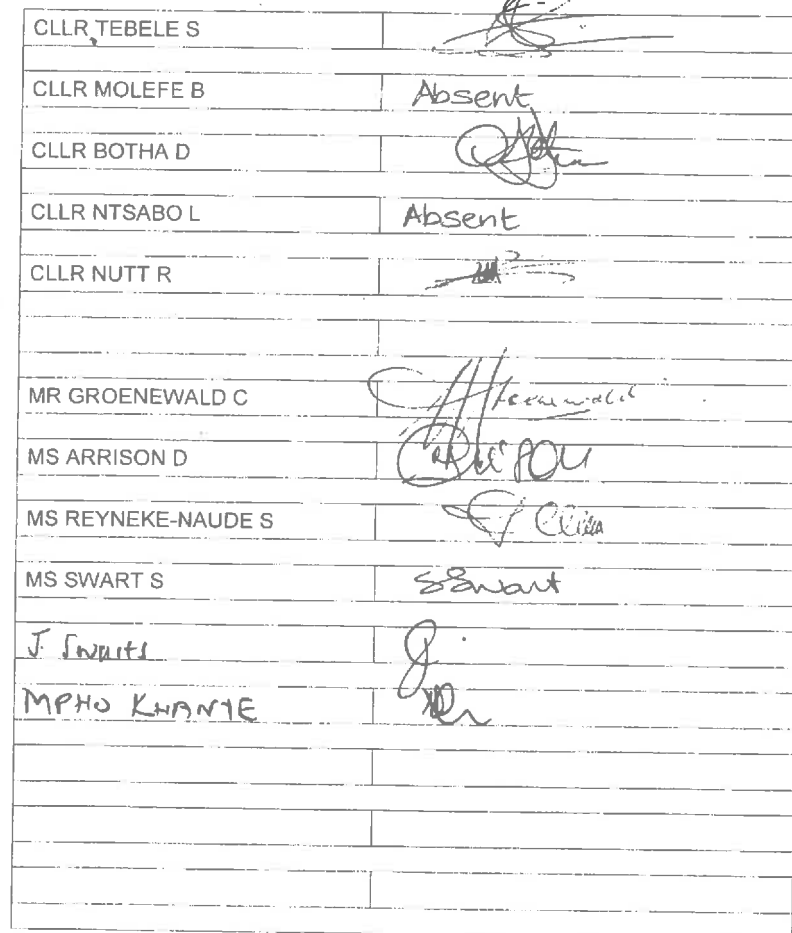 CLLR TEBELE S
CLLR MOLEFE B Absent
CLLR BOTHA D
CLLR NTSABO L Absent
CLLR NUTT R
MR GROENEWALD C
MS ARRISON D
MS REYNEKE-NAUDE S
MS SWART S SSwart
J.
MPHO KHANYE